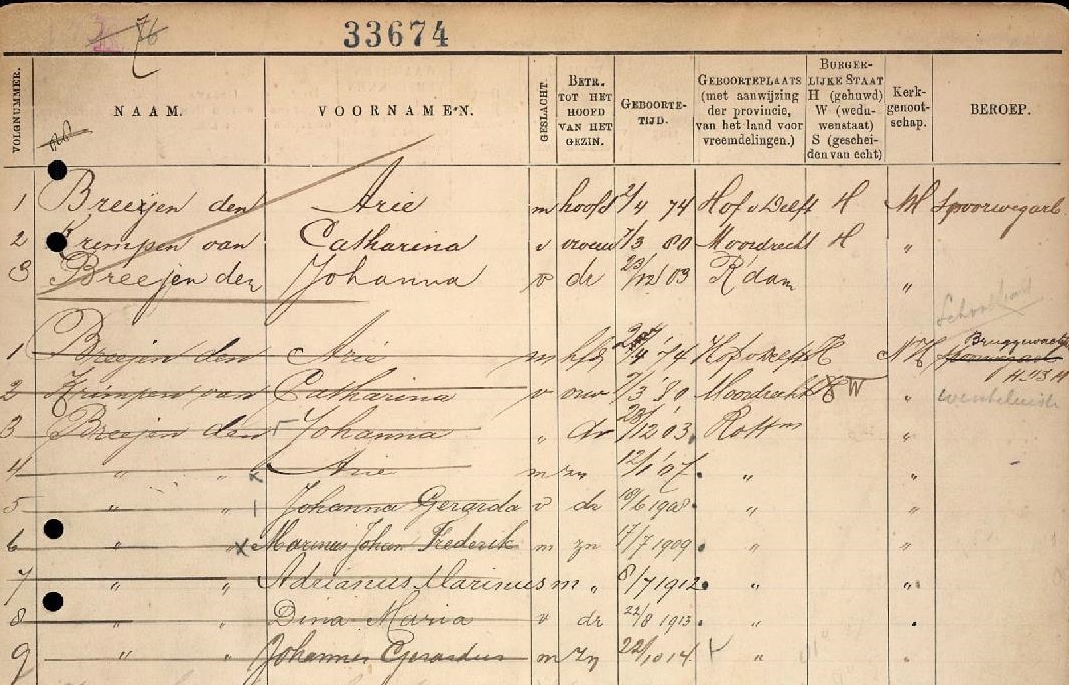 76
33674
VOLGNUMMER. NAAM. VOORNAMEN. GESLACHT. BETR. TOT HET HOOFD VAN HET GEZIN. GEBOORTE-TIJD. GEBOORTEPLAATS (met aanwijzing der provincie, van het land voor vreemdelingen.) BURGER-LIJKE STAAT H (gehuwd) W (wedu-wenstaat) S (geschei-den van echt) Kerk-genoot-schap. BEROEP.
1 Breejen den Arie m hoofd 2/4 74 Hof v Delft H NH Spoorwegarb.
2 Krimpen van Catharina v vrouw 7/3 80 Moordrecht H "
3 Breejen den Johanna v dr 23/12 03 R'dam "
1 Breejen den Arie m hfd 2/4 '74 Hof v Delft H NH Spoorwegarb Bruggewacht
2 Krimpen van Catharina v vrw 7/3 '80 Moordrecht H W " werkeluish
3 Breejen den Johanna " dr 23/12 03. Rottm "
4 " " Arie m zn 12/1 '07. " "
5 " " Johanna Gerarda v dr 10/6 1908. " "
6 " " Marinus Johan Frederik m zn 17/7 1909. " "
7 " " Adrianus Marinus m " 8/7 1912. " "
8 Dina Maria v dr 22/8 1913. " .
9 " " Johannes Gerardus m zn 22/10 14 " "